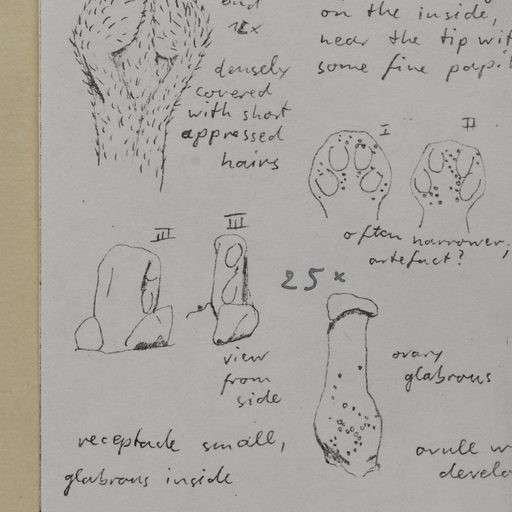 bud
12x
on the inside,
near the tip wit
some fine papi
densely
covered
with short
appressed
hairs
I
II
often narrower,
artefact?
III
III
25x
view
from
side
ovary
glabrous
receptacle small,
glabrous inside
ovule w
develo